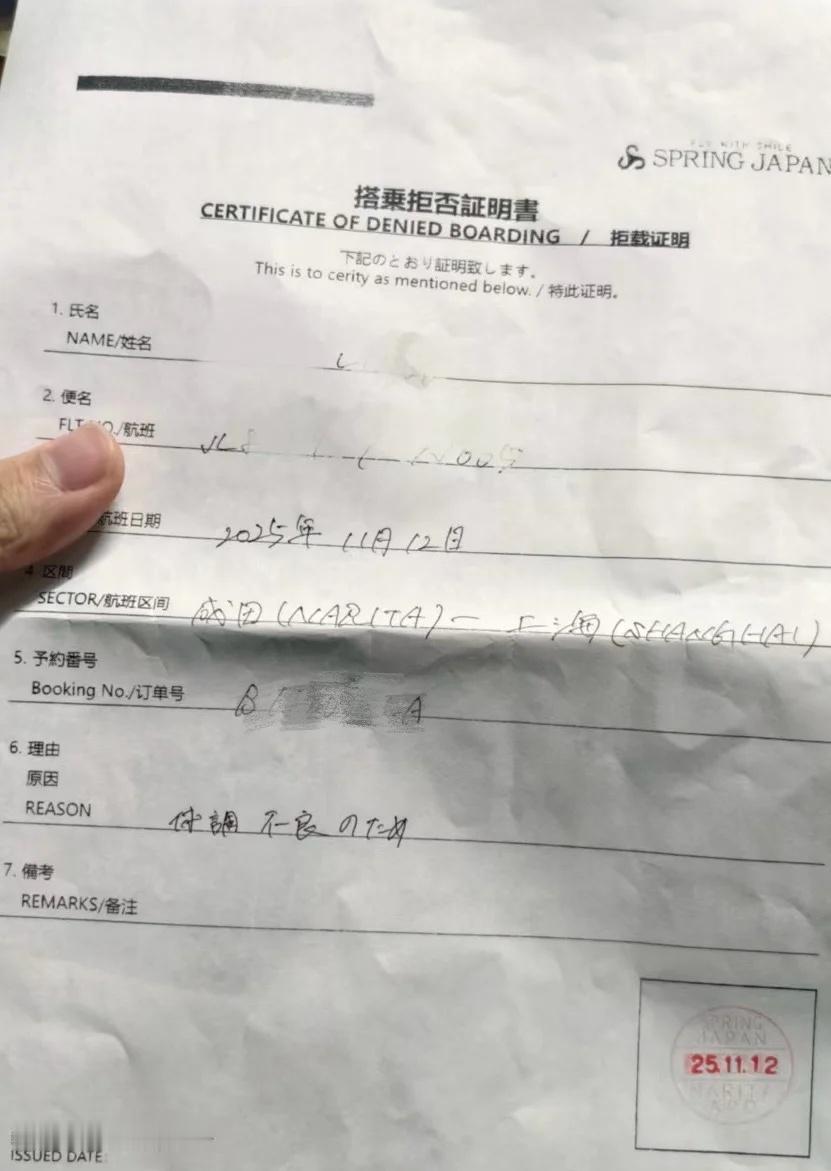 FLY WITH SMILE
SPRING JAPAN
搭乗拒否証明書
CERTIFICATE OF DENIED BOARDING / 拒载证明
下記のとおり証明致します。
This is to cerity as mentioned below. / 特此证明。
1. 氏名
NAME/姓名
2. 便名
FLT NO./航班
航班日期 2025年 11月 12日
4. 区間
SECTOR/航班区间 成田 (NARITA) — 上海 (SHANGHAI)
5. 予約番号
Booking No./订单号 B A
6. 理由
原因
REASON 体調 不良 のため
7. 備考
REMARKS/备注
SPRING
JAPAN
25.11.12
NARITA
APO
ISSUED DATE: